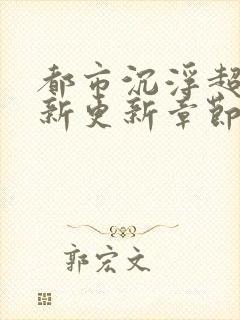 都市沉浮超
新更新章節
郭宏文